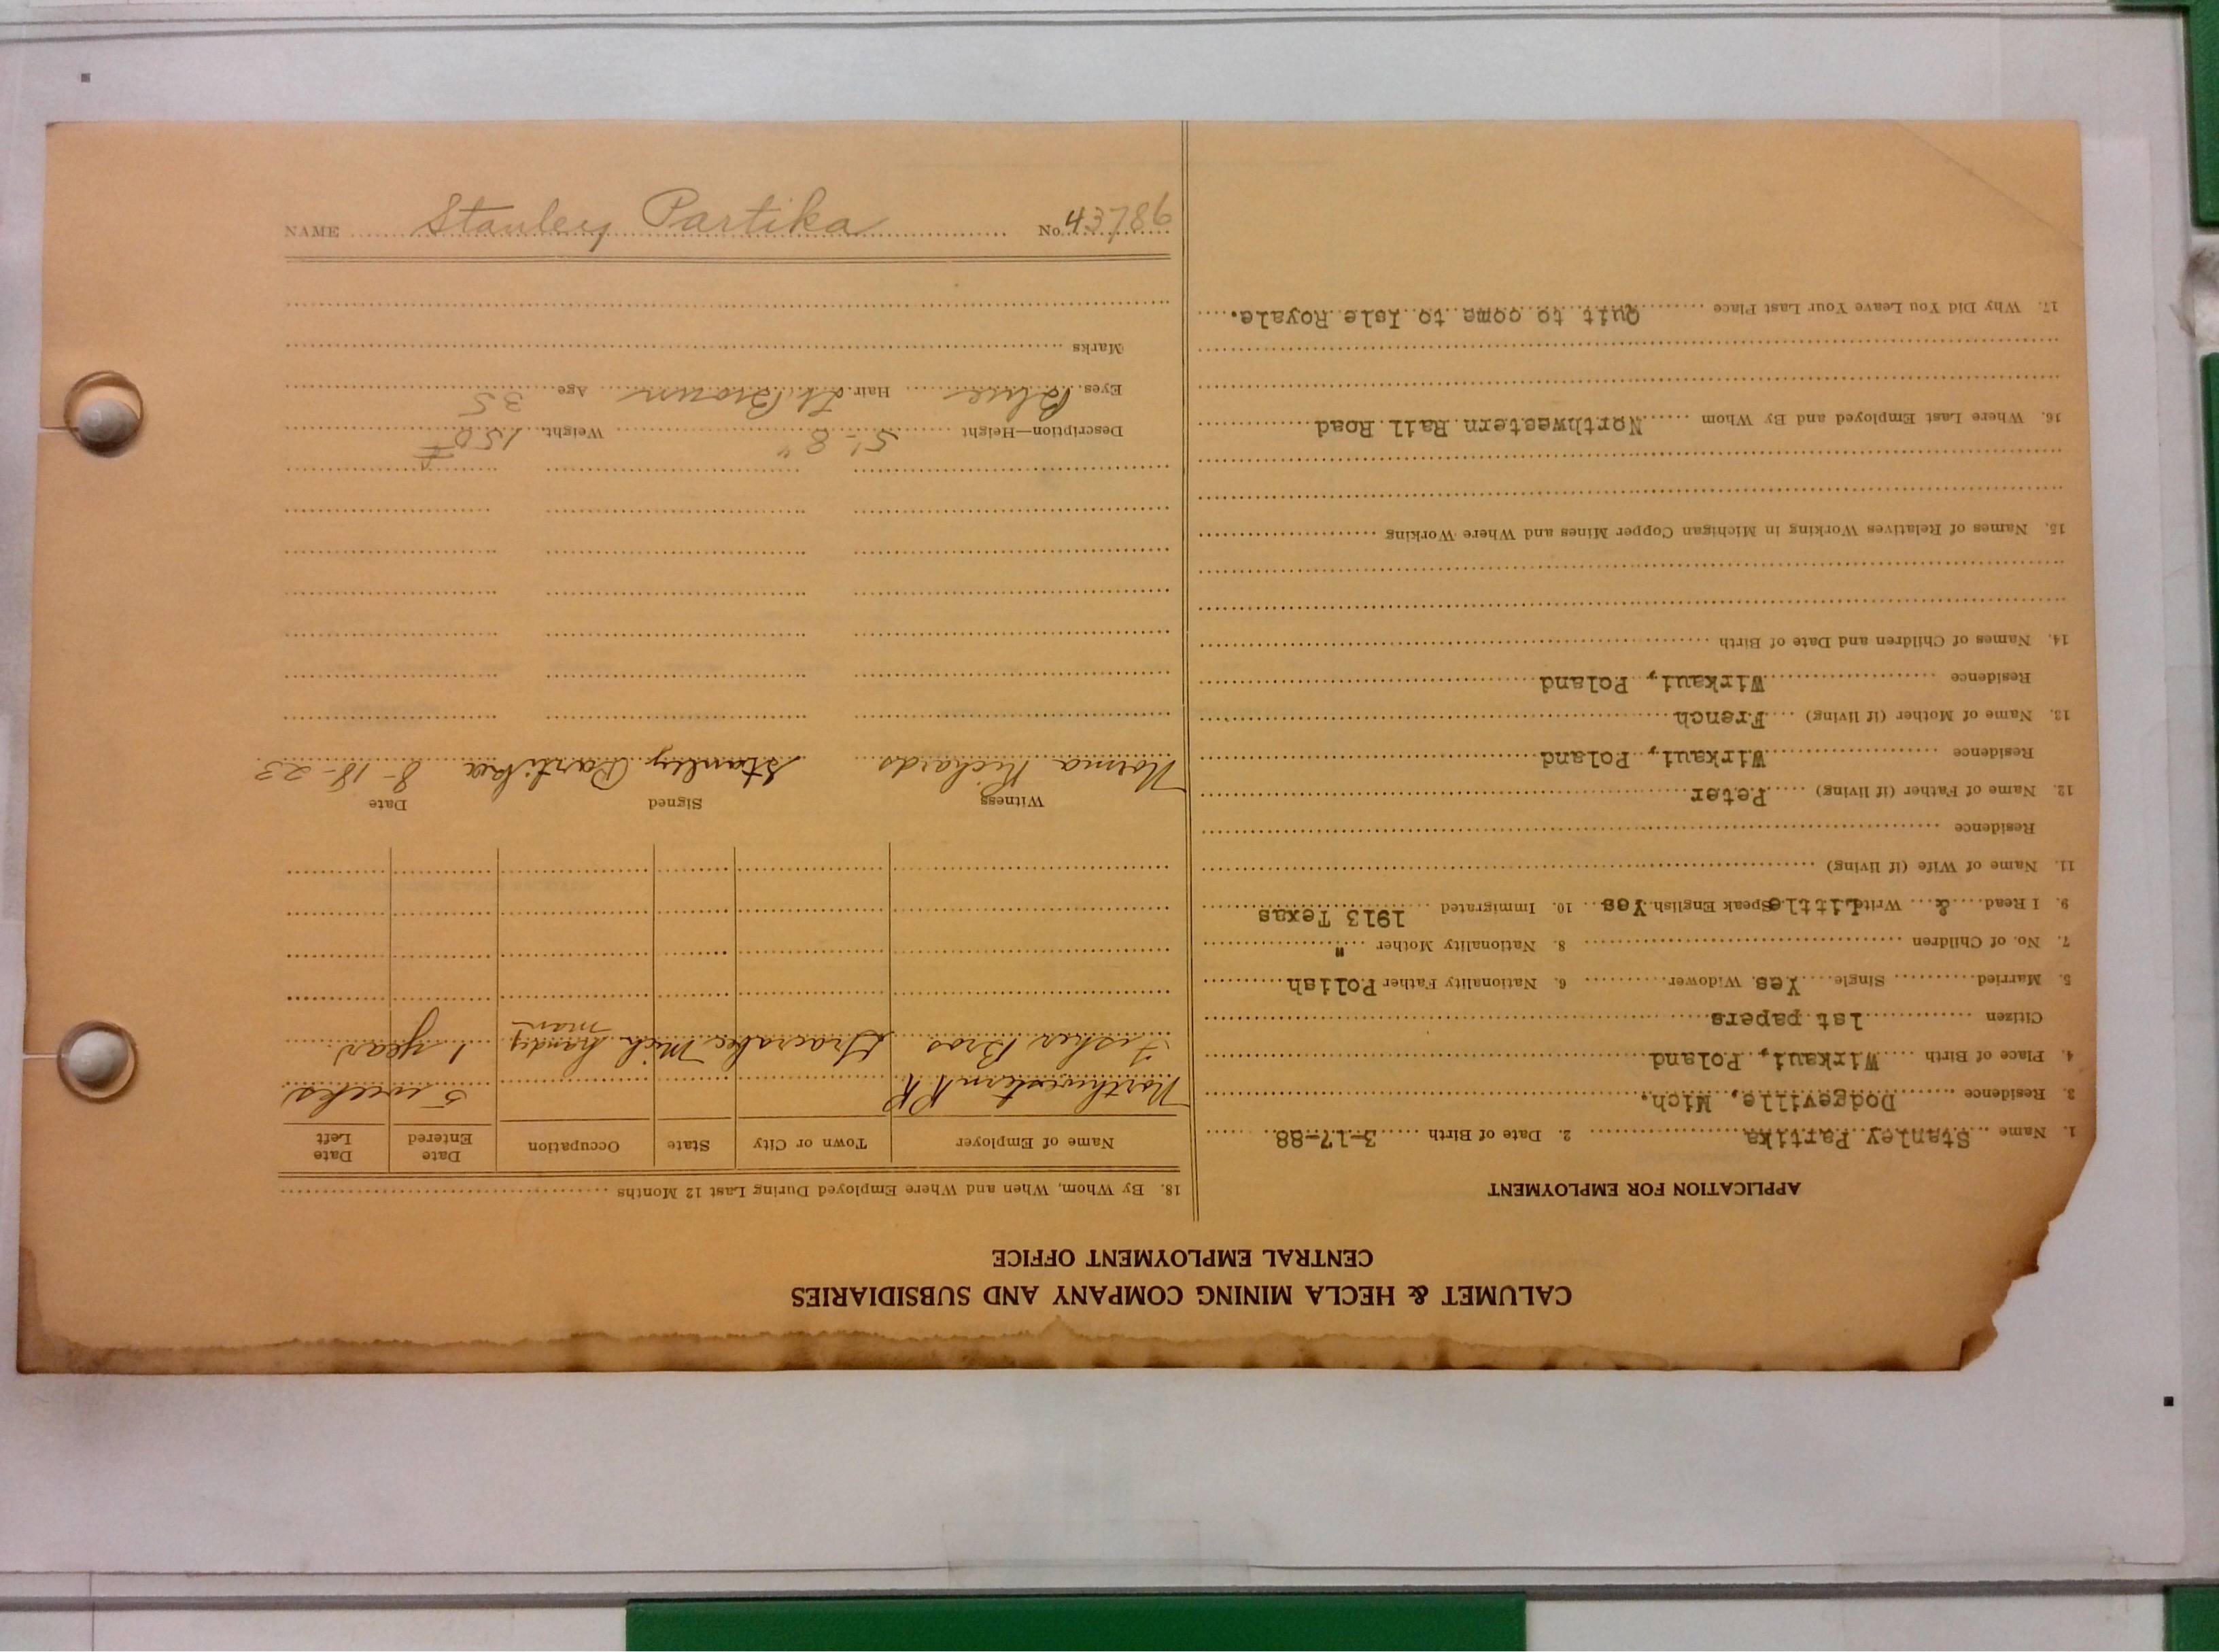 CALUMET & HECLA MINING COMPANY AND SUBSIDIARIES
CENTRAL EMPLOYMENT OFFICE
APPLICATION FOR EMPLOYMENT
1. Name Stanley Partika 2. Date of Birth 3-17-88
3. Residence Dodgeville, Mich.
4. Place of Birth Wirkaui, Poland
Citizen 1st papers
5. Married Single Yes Widower 6. Nationality Father Polish
7. No. of Children 8. Nationality Mother "
9. I Read & Write Little Speak English Yes 10. Immigrated 1913 Texas
11. Name of Wife (if living)
Residence
12. Name of Father (if living) Peter
Residence Wirkaui, Poland
13. Name of Mother (if living) French
Residence Wirkaui, Poland
14. Names of Children and Date of Birth
15. Names of Relatives Working in Michigan Copper Mines and Where Working
16. Where Last Employed and By Whom Northwestern Rail Road
17. Why Did You Leave Your Last Place Quit to come to Isle Royale.
18. By Whom, When and Where Employed During Last 12 Months
Name of Employer Town or City State Occupation Date Entered Date Left
Northwestern RR 5 weeks
Fisher Bros Mich handy man 1 year
Witness Signed Date
Norma Richards Stanley Partika 8-18-23
Description—Height 5'-8" Weight 150#
Eyes Blue Hair Lt. Brown Age 35
Marks
NAME Stanley Partika No. 43786